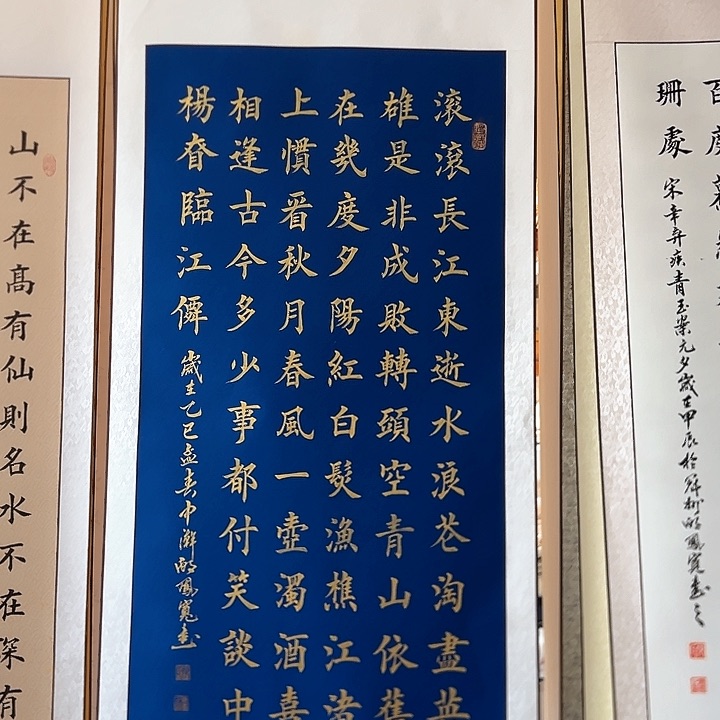 珊處 宋辛弃疾青玉案元夕歲在甲辰於鳳寬書之
滾滾長江東逝水浪花淘盡英
雄是非成敗轉頭空青山依舊
在幾度夕陽紅白髮漁樵江渚
上慣看秋月春風一壺濁酒喜
相逢古今多少事都付笑談中
楊眘臨江僊 歲在乙巳孟春中澣鳳寬書
山不在高有仙則名水不在深有